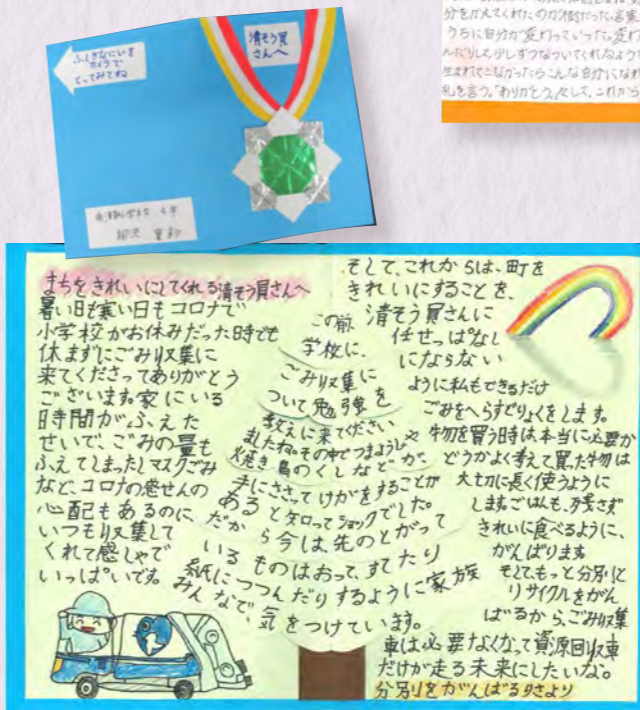 清そう員
さんへ
ふしぎなにじを
カメラで
とってみてね
4年
分をかえてくれたのが
うちに自分が変わっていった。変わ
んだりして、少しずつついてくれるような
生まれてこなかったらこんな自分になれ
礼を言う。「ありがとう。」そして、これから
まちをきれいにしてくれる清そう員さんへ
暑い日も寒い日もコロナで
小学校がお休みだった時でも
休まずにごみ収集に
来てくださってありがとう
ございます。家にいる
時間がふえた
せいで、ごみの量も
ふえてしまったしマスクごみ
など、コロナの感せんの
心配もあるのに、
いつも収集して
くれて感しゃで
いっぱいです。
この前、
学校に、
ごみ収集に
ついて勉強を
教えに来てください
ましたね。その中でつまようじや
焼き鳥のくしなどが、
手にささってけがをすることが
あると知ってショックでした。
だから今は、先のとがって
いるものはおって、すてたり
紙につつんだりするように家族
みんなで、気をつけています。
そして、これからは、町を
きれいにすることを、
清そう員さんに
任せっぱなし
にならない
ように私もできるだけ
ごみをへらすどりょくをします。
物を買う時は本当に必要か
どうかよく考えて買た物は
大切に長く使うように
します。ごはんも、残さず
きれいに食べるように、
がんばります
そして、もっと分別と
リサイクルをがん
ばるから、ごみ収集
車は必要なくなって資源回収車
だけが走る未来にしたいな。
分別をがんばる
より